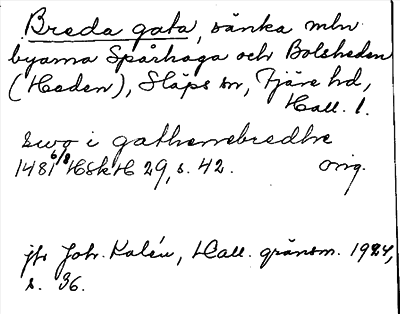 Breda gata, sänka mln
byarna Spårhaga och Bolsheden
(Heden), Släps sn, Fjäre hd,
Hall. l.
swo i gathennebredhe
1481 6/8 HSH 29, s. 42. orig.
jfr Joh. Kalén, Hall. gränsm. 1924,
s. 36.